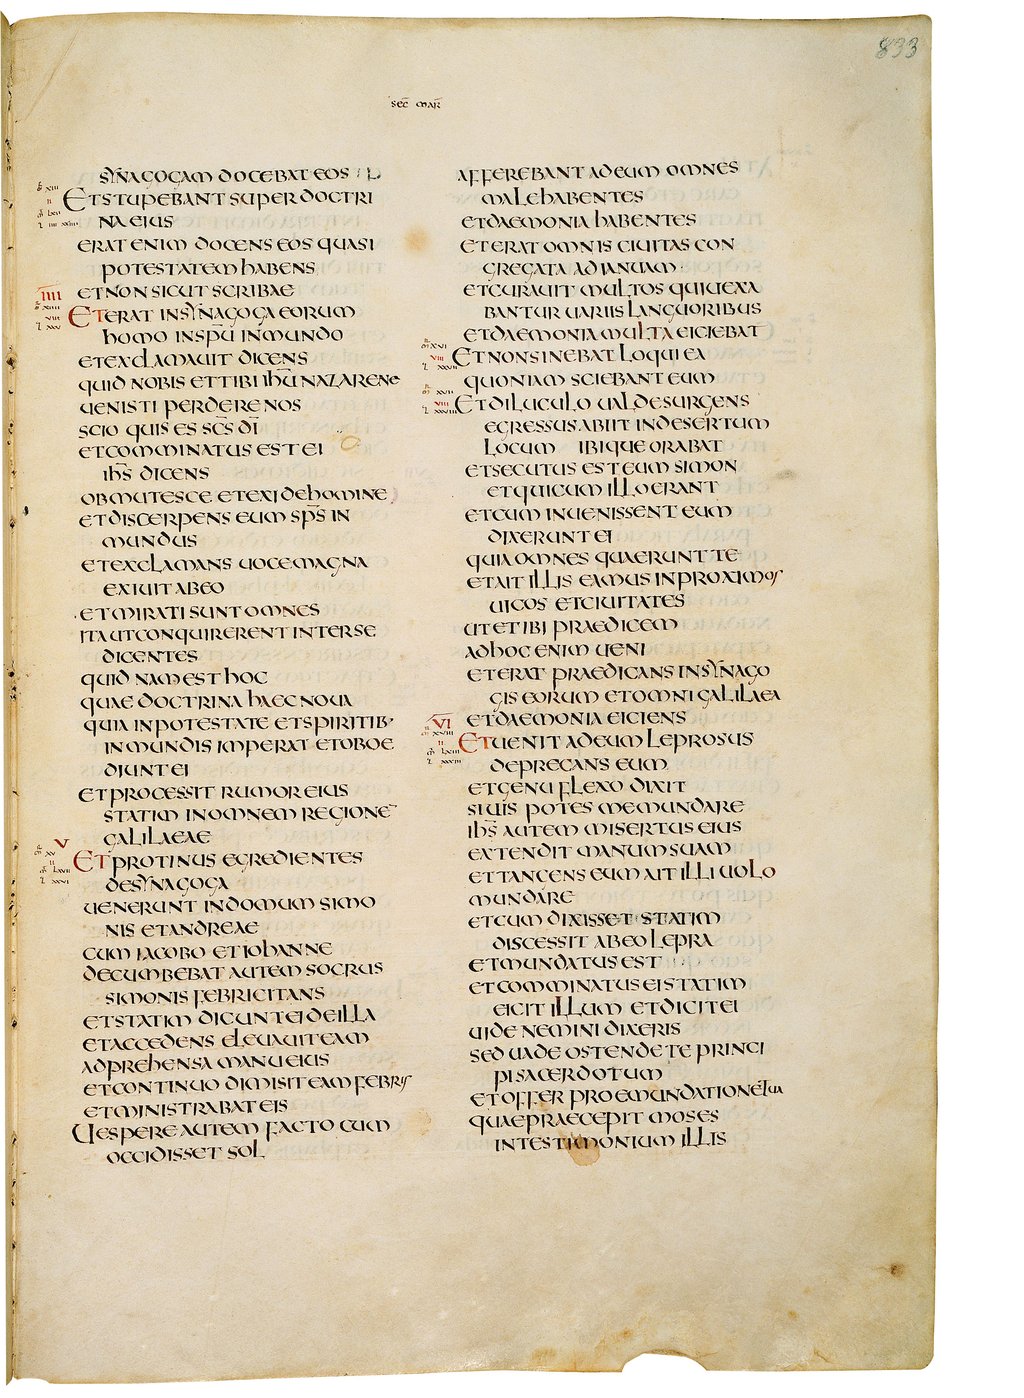 833
SEC̄ MAR̄
SYNAGOGAM DOCEBAT EOS
ET STUPEBANT SUPER DOCTRI
NA EIUS
ERAT ENIM DOCENS EOS QUASI
POTESTATEM HABENS
ET NON SICUT SCRIBAE
IIII
ET ERAT IN SYNAGOGA EORUM
HOMO IN SPŪ INMUNDO
ET EXCLAMAVIT DICENS
QUID NOBIS ET TIBI IHŪ NAZARENE
UENISTI PERDERE NOS
SCIO QUIS ES SC̄S DĪ
ET COMMINATUS EST EI
IH̄S DICENS
OBMUTESCE ET EXI DE HOMINE
ET DISCERPENS EUM SP̄S IN
MUNDUS
ET EXCLAMANS UOCE MAGNA
EXIUIT AB EO
ET MIRATI SUNT OMNES
ITA UT CONQUIRERENT INTER SE
DICENTES
QUID NAM EST HOC
QUAE DOCTRINA HAEC NOUA
QUIA IN POTESTATE ET SPIRITIB'
INMUNDIS IMPERAT ET OBOE
DIUNT EI
ET PROCESSIT RUMOR EIUS
STATIM IN OMNEM REGIONE¯
GALILAEAE
V
ET PROTINUS EGREDIENTES
DE SYNAGOGA
UENERUNT IN DOMUM SIMO
NIS ET ANDREAE
CUM IACOBO ET IOHANNE
DECUMBEBAT AUTEM SOCRUS
SIMONIS FEBRICITANS
ET STATIM DICUNT EI DE ILLA
ET ACCEDENS ELEUAUIT EAM
ADPREHENSA MANU EIUS
ET CONTINUO DIMISIT EAM FEBRIS
ET MINISTRABAT EIS
UESPERE AUTEM FACTO CUM
OCCIDISSET SOL
AFFEREBANT AD EUM OMNES
MALE HABENTES
ET DAEMONIA HABENTES
ET ERAT OMNIS CIUITAS CON
GREGATA AD IANUAM
ET CURAUIT MULTOS QUI UEXA
BANTUR UARIIS LANGUORIBUS
ET DAEMONIA MULTA EICIEBAT
ET NON SINEBAT LOQUI EA
QUONIAM SCIEBANT EUM
ET DILUCULO UALDE SURGENS
EGRESSUS ABIIT IN DESERTUM
LOCUM IBIQUE ORABAT
ET SECUTUS EST EUM SIMON
ET QUI CUM ILLO ERANT
ET CUM INUENISSENT EUM
DIXERUNT EI
QUIA OMNES QUAERUNT TE
ET AIT ILLIS EAMUS IN PROXIMOS
UICOS ET CIUITATES
UT ET IBI PRAEDICEM
AD HOC ENIM UENI
ET ERAT PRAEDICANS IN SYNAGO
GIS EORUM ET OMNI GALILAEA
ET DAEMONIA EICIENS
VI
ET UENIT AD EUM LEPROSUS
DEPRECANS EUM
ET GENU FLEXO DIXIT
SI UIS POTES ME MUNDARE
IH̄S AUTEM MISERTUS EIUS
EXTENDIT MANUM SUAM
ET TANGENS EUM AIT ILLI UOLO
MUNDARE
ET CUM DIXISSET STATIM
DISCESSIT AB EO LEPRA
ET MUNDATUS EST
ET COMMINATUS EI STATIM
EICIT ILLUM ET DICIT EI
UIDE NEMINI DIXERIS
SED UADE OSTENDE TE PRINCI
PI SACERDOTUM
ET OFFER PRO EMUNDATIONE TUA
QUAE PRAECEPIT MOSES
IN TESTIMONIUM ILLIS